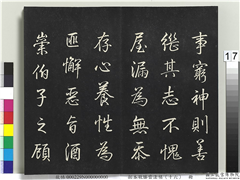 事窮神則善
繼其志不愧
屋漏為無忝
存心養性為
匪懈惡旨酒
崇伯子之顧
17